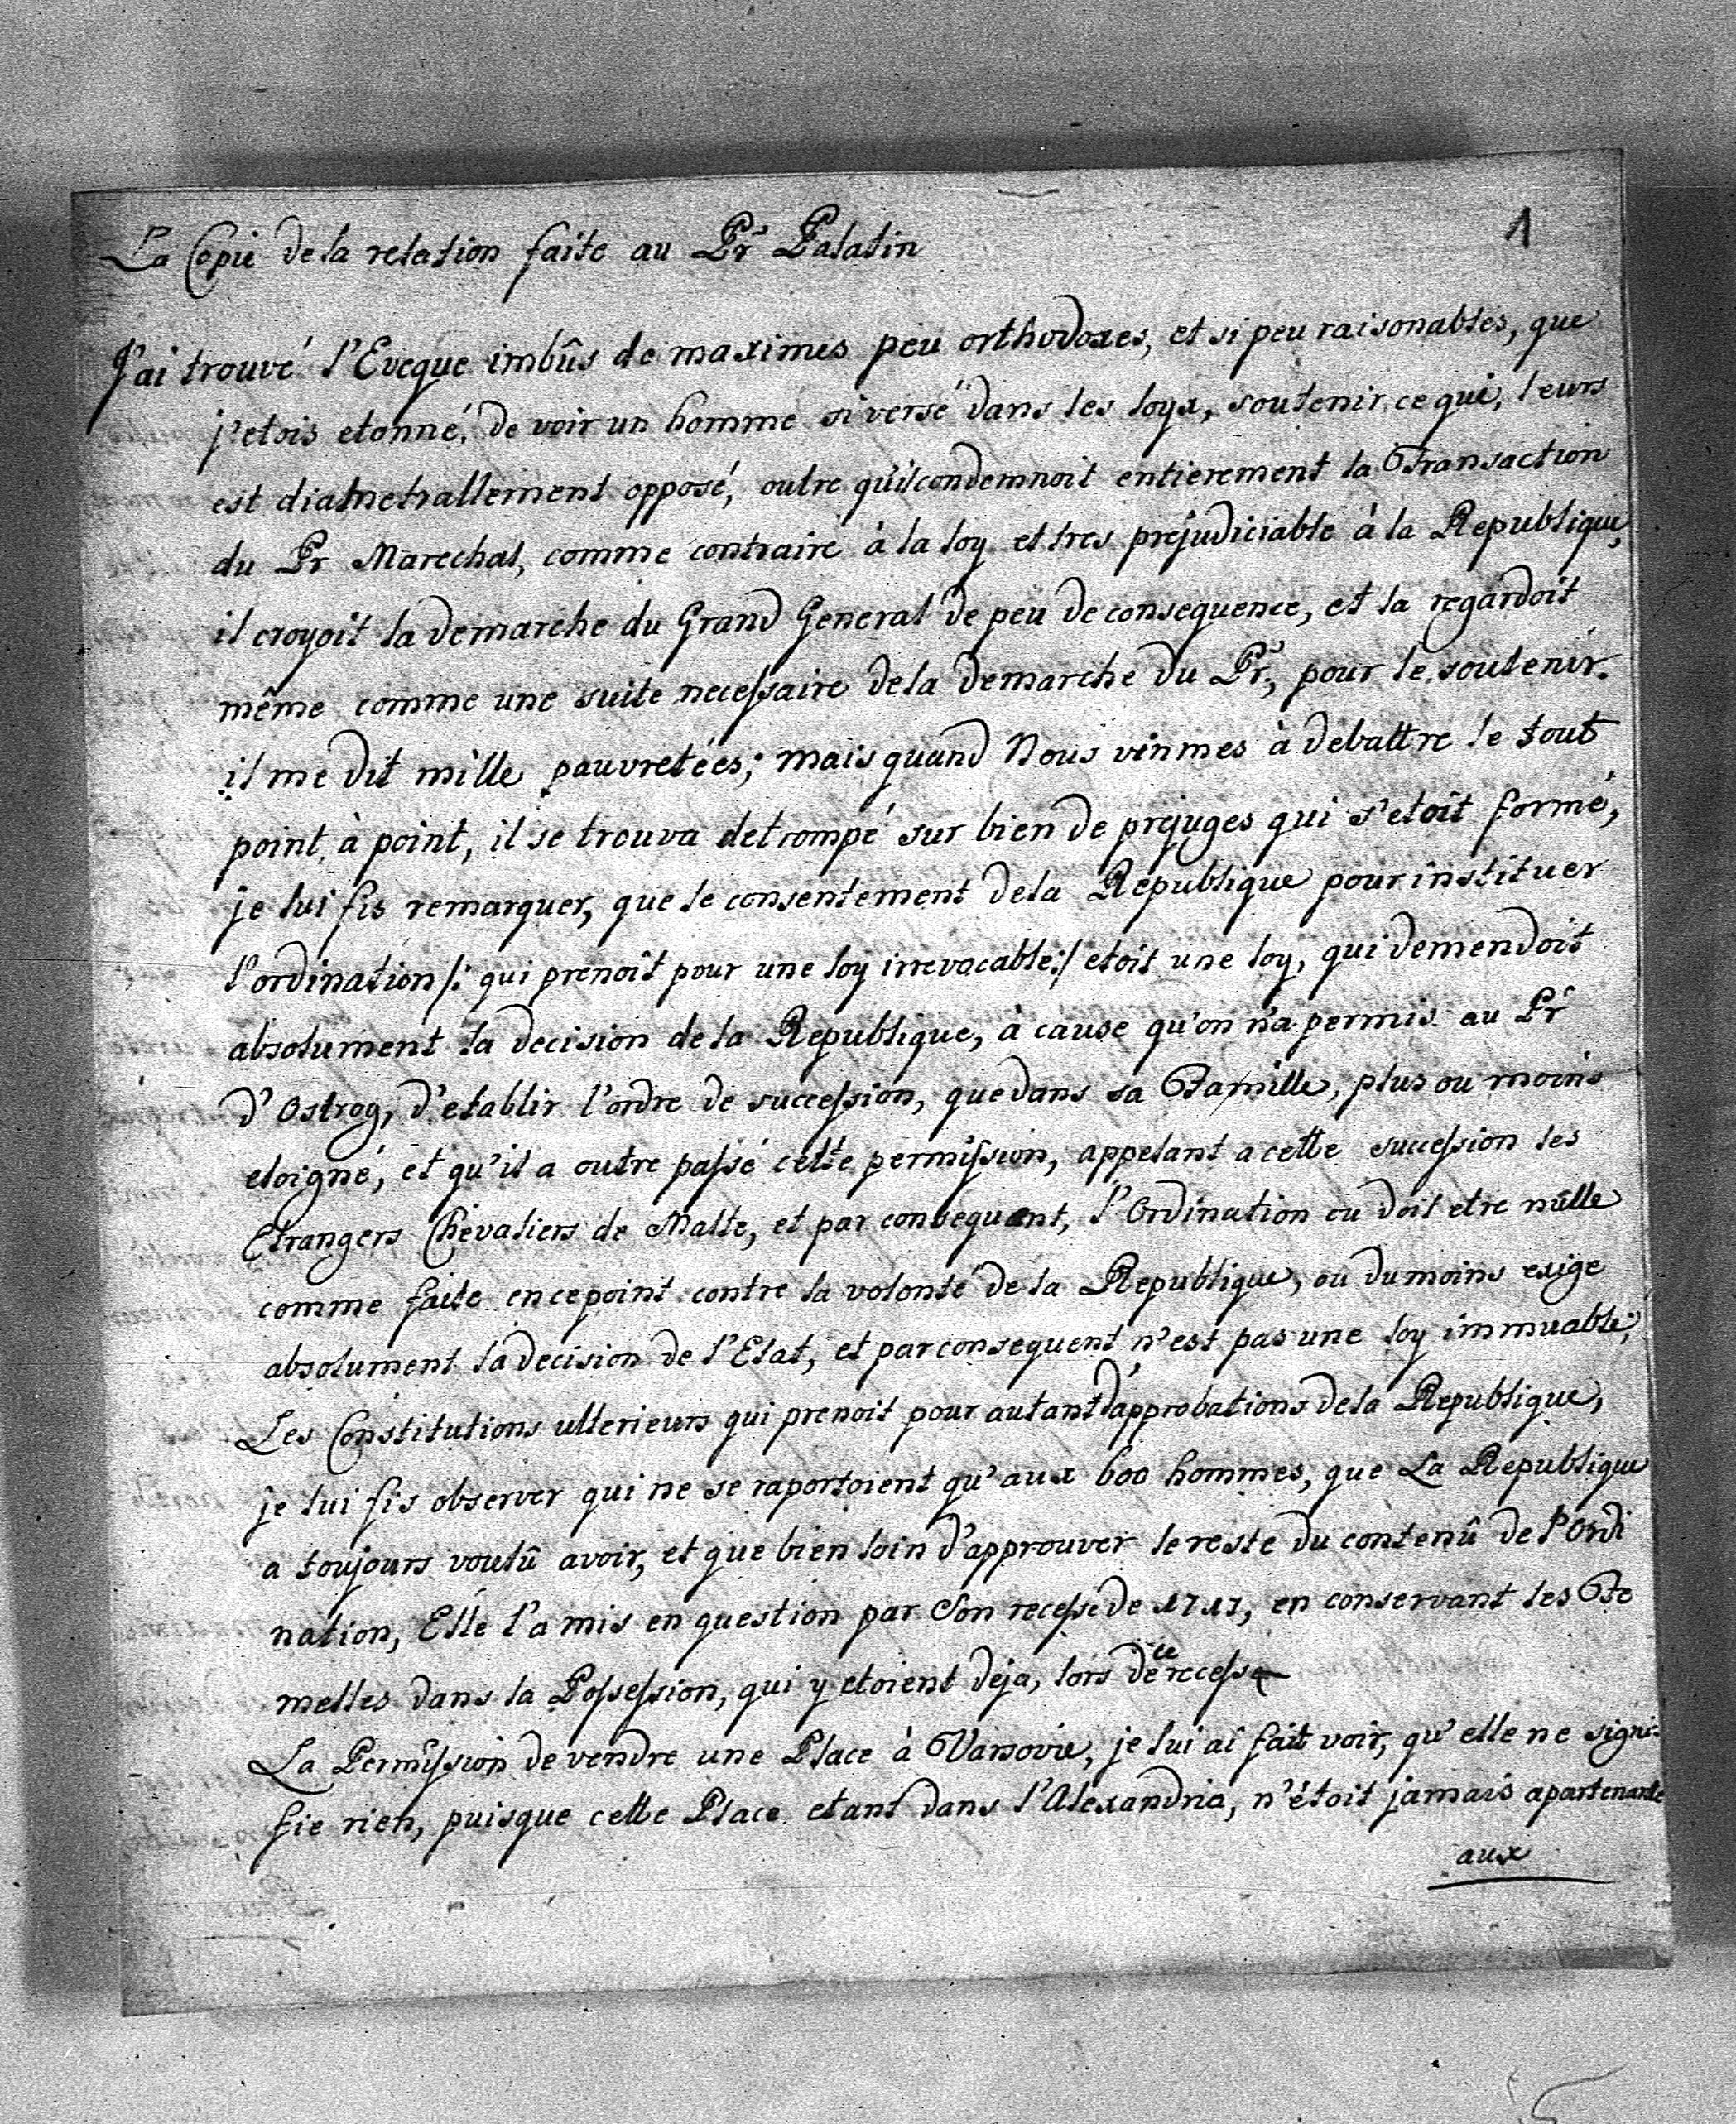 La Copie de la relation faite au Pr Palatin
1
J'ai trouvé l'Eveque imbûs de maximes peu orthodoxes, et si peu raisonables, que
j'etois etonné, de voir un homme si versé dans les loyx, soutenir ce qui, leurs
est diametrallement opposé, outre qu'il condemnoit entierement la Transaction
du Pr Marechal, comme contraire à la loy et tres préjudiciable à la Republique,
il croyoit la demarche du Grand General de peu de consequence, et la regardoit
même comme une suite necessaire de la demarche du Pr, pour le soutenir.
il me dit mille pauvretées; mais quand Nous vinmes à debattre le tout
point à point, il se trouva detrompé sur bien de prejuges qui s'etoit formé,
je lui fis remarquer, que le consentement de la Republique pour instituer
l'ordination /: qui prenoit pour une loy irrevocable :/ etoit une loy, qui demendoit
absolument la decision de la Republique, à cause qu'on n'a permis au Pr
d'Ostrog, d'etablir l'ordre de succession, que dans sa Famille, plus ou moins
eloigné, et qu'il a outre passé cette permission, appelant a cette succession les
Etrangers Chevaliers de Malte, et par consequant, l'Ordination ou doit etre nulle
comme faite en ce point contre la volonté de la Republique, ou du moins exige
absolument la decision de l'Etat, et par consequent n'est pas une loy immuable;
Les Constitutions ulterieurs qui prenoit pour autant d'approbations de la Republique,
je lui fis observer qui ne se raportoient qu'aux 600 hommes, que La Republique
a toujours voulû avoir, et que bien loin d'approuver le reste du contenû de l'Ordi
nation, Elle l'a mis en question par Son recesse de 1717, en conservant les Fe
melles dans la Possession, qui y etoient deja, lors de ce recesse
La Permission de vendre une Place à Varsovie, je lui ai fait voir, qu'elle ne signi-
fie rien, puisque cette Place etant dans l'Alexandria, n'étoit jamais apartenante
aux